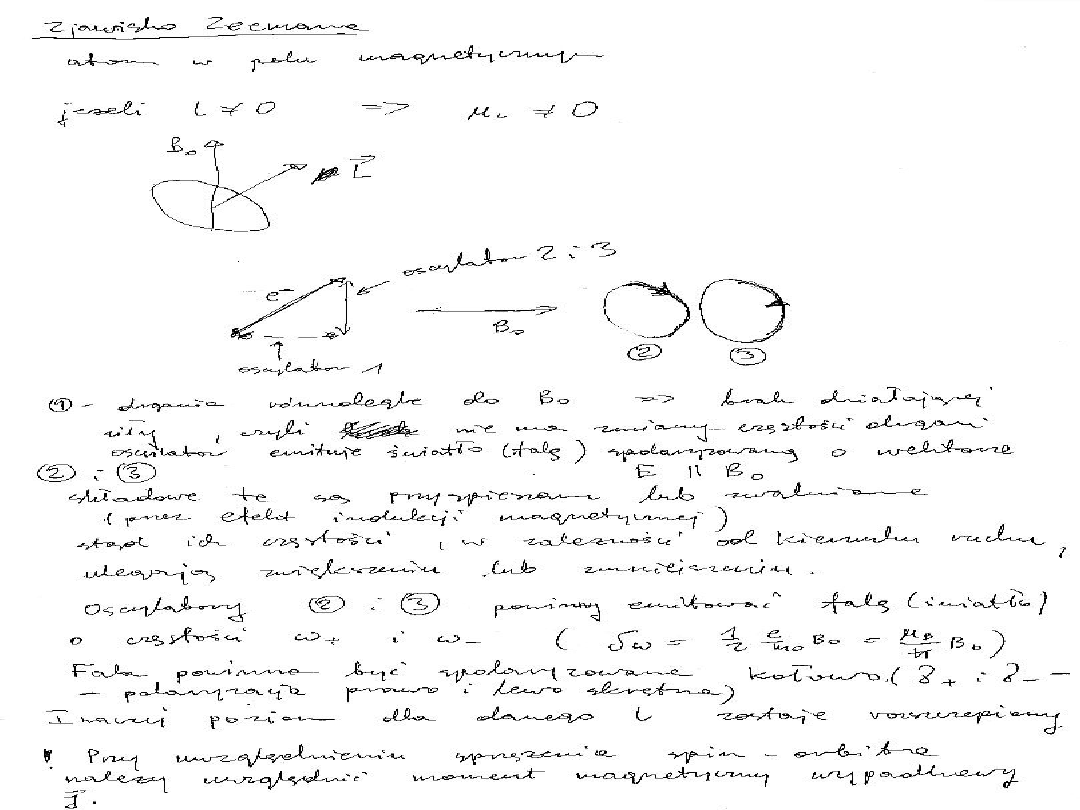 Zjawisko Zeemana
atom w polu magnetycznym
jeżeli L ≠ 0 => μL ≠ 0
B₀
L⃗
oscylator 2 i 3
e⁻
B₀
② ③
oscylator 1
① - drgania równoległe do B₀ => brak działającej
siły, czyli nie ma zmiany częstości drgań
oscylator emituje światło (falę) spolaryzowaną o wektorze
E || B₀
② i ③
składowe te są przyspieszane lub zwalniane
(przez efekt indukcji magnetycznej)
stąd ich częstości, w zależności od kierunku ruchu,
ulegają zwiększeniu lub zmniejszeniu.
Oscylatory ② i ③ powinny emitować falę (światło)
o częstości ω₊ i ω₋ ( δω = 1/2 e/m₀ B₀ = μB/ħ B₀ )
Fala powinna być spolaryzowana kołowo (δ₊ i δ₋ -
- polaryzacja prawo i lewo skrętna)
Inaczej poziom dla danego L zostaje rozszczepiony
Przy uwzględnieniu sprzężenia spin - orbita
należy uwzględnić moment magnetyczny wypadkowy
J⃗.